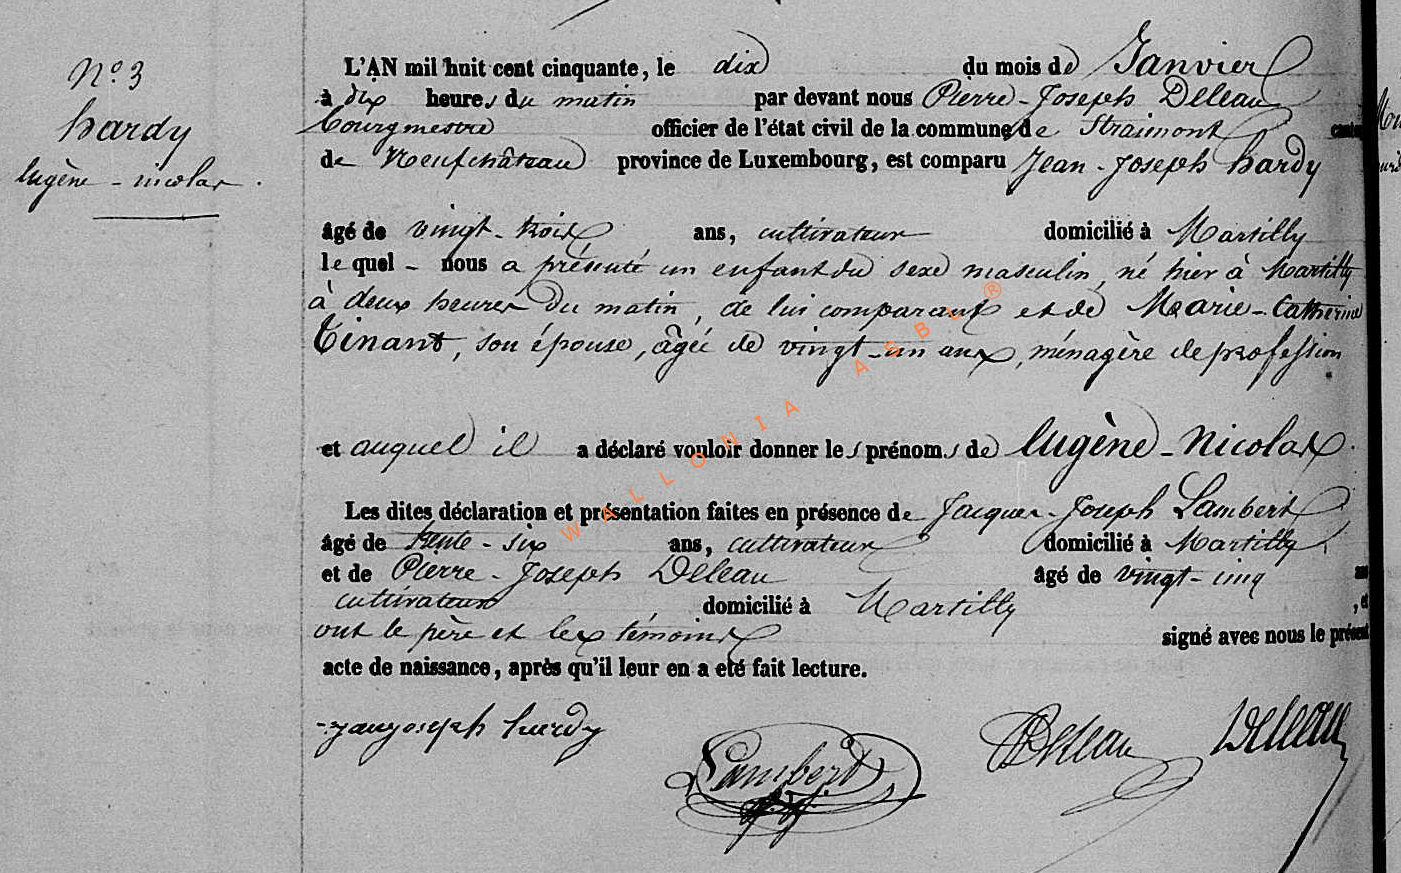 N.º 3
hardy
Eugène - nicolas.
L'AN mil huit cent cinquante, le dix du mois de Janvier
à dix heures du matin par devant nous Pierre-Joseph Deleau
bourgmestre officier de l'état civil de la commune de Straimont
de Neufchâteau province de Luxembourg, est comparu Jean-Joseph hardy
âgé de vingt-trois ans, cultivateur domicilié à Martilly
le quel - nous a présenté un enfant du sexe masculin, né hier à Martilly
à deux heures du matin, de lui comparant et de Marie-Catherine
Tinant, son épouse, âgée de vingt-un ans, ménagère de profession
et auquel il a déclaré vouloir donner les prénoms de Eugène-Nicolas.
Les dites déclaration et présentation faites en présence de Jacques-Joseph Lambert
âgé de trente-six ans, cultivateur domicilié à Martilly,
et de Pierre-Joseph Deleau âgé de vingt-cinq
cultivateur domicilié à Martilly , et
ont le père et les témoins signé avec nous le présent
acte de naissance, après qu'il leur en a eté fait lecture.
janjoseph hardy
Lambert
Deleau
Deleau
WALLONIA ASBL ®